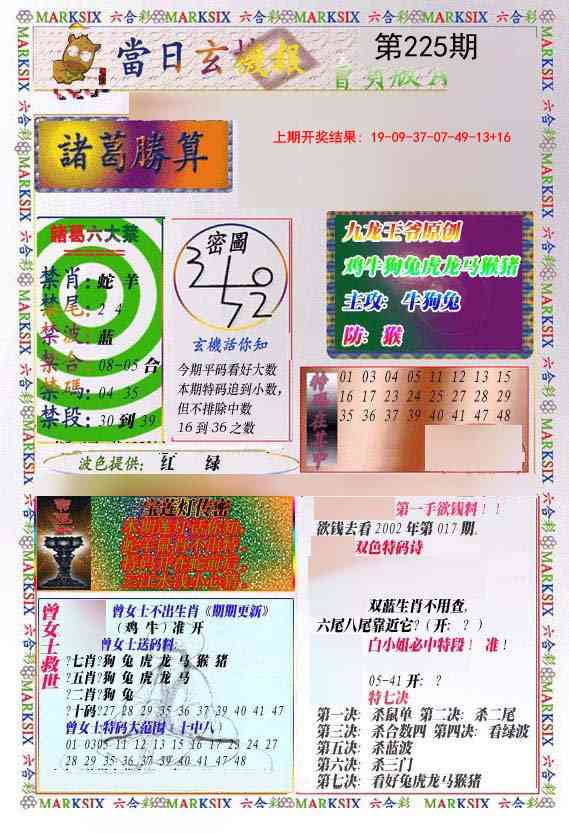 MARKSIX 六合彩 MARKSIX 六合彩 MARKSIX 六合彩 MARKSIX 六合彩
當日玄機報
第225期
諸葛勝算
上期开奖结果：19-09-37-07-49-13+16
諸葛六大禁
禁肖：蛇 羊
禁尾：2 4
禁波：蓝
禁合：08-05 合
禁碼：04 35
禁段：30 到 39
密圖
玄機話你知
今期平码看好大数
本期特码追到小数，
但不排除中数
16 到 36 之数
九龙王爷原创
鸡牛狗兔虎龙马猴猪
主攻：牛狗兔
防：猴
01 03 04 05 11 12 13 15
16 17 23 24 25 27 28 29
35 36 37 39 40 41 47 48
波色提供： 红 绿
宝莲灯传密
曾女士救世
曾女士不出生肖《期期更新》
（鸡 牛）准 开
曾女士送码料：
?七肖?狗 兔 虎 龙 马 猴 猪
?五肖?狗 兔 虎 龙 马
?二肖?狗 兔
?十码?27 28 29 35 36 37 39 40 41 47
曾女士特码大范围（十中八）
01 0305 11 12 13 15 16 17 23 24 27
28 29 35 36 37 39 40 41 47 48
第一手欲钱料！！
欲钱去看 2002 年第 017 期。
双色特码诗
双蓝生肖不用查，
六尾八尾靠近它?（开：？）
白小姐必中特段！ 准！
05-41 开：？
特七决
第一决：杀鼠单 第二决：杀二尾
第三决：杀合数四 第四决：看绿波
第五决：杀蓝波
第六决：杀三门
第七决：看好兔虎龙马猴猪
MARKSIX 六合彩 MARKSIX 六合彩 MARKSIX 六合彩 MARKSIX 六合彩